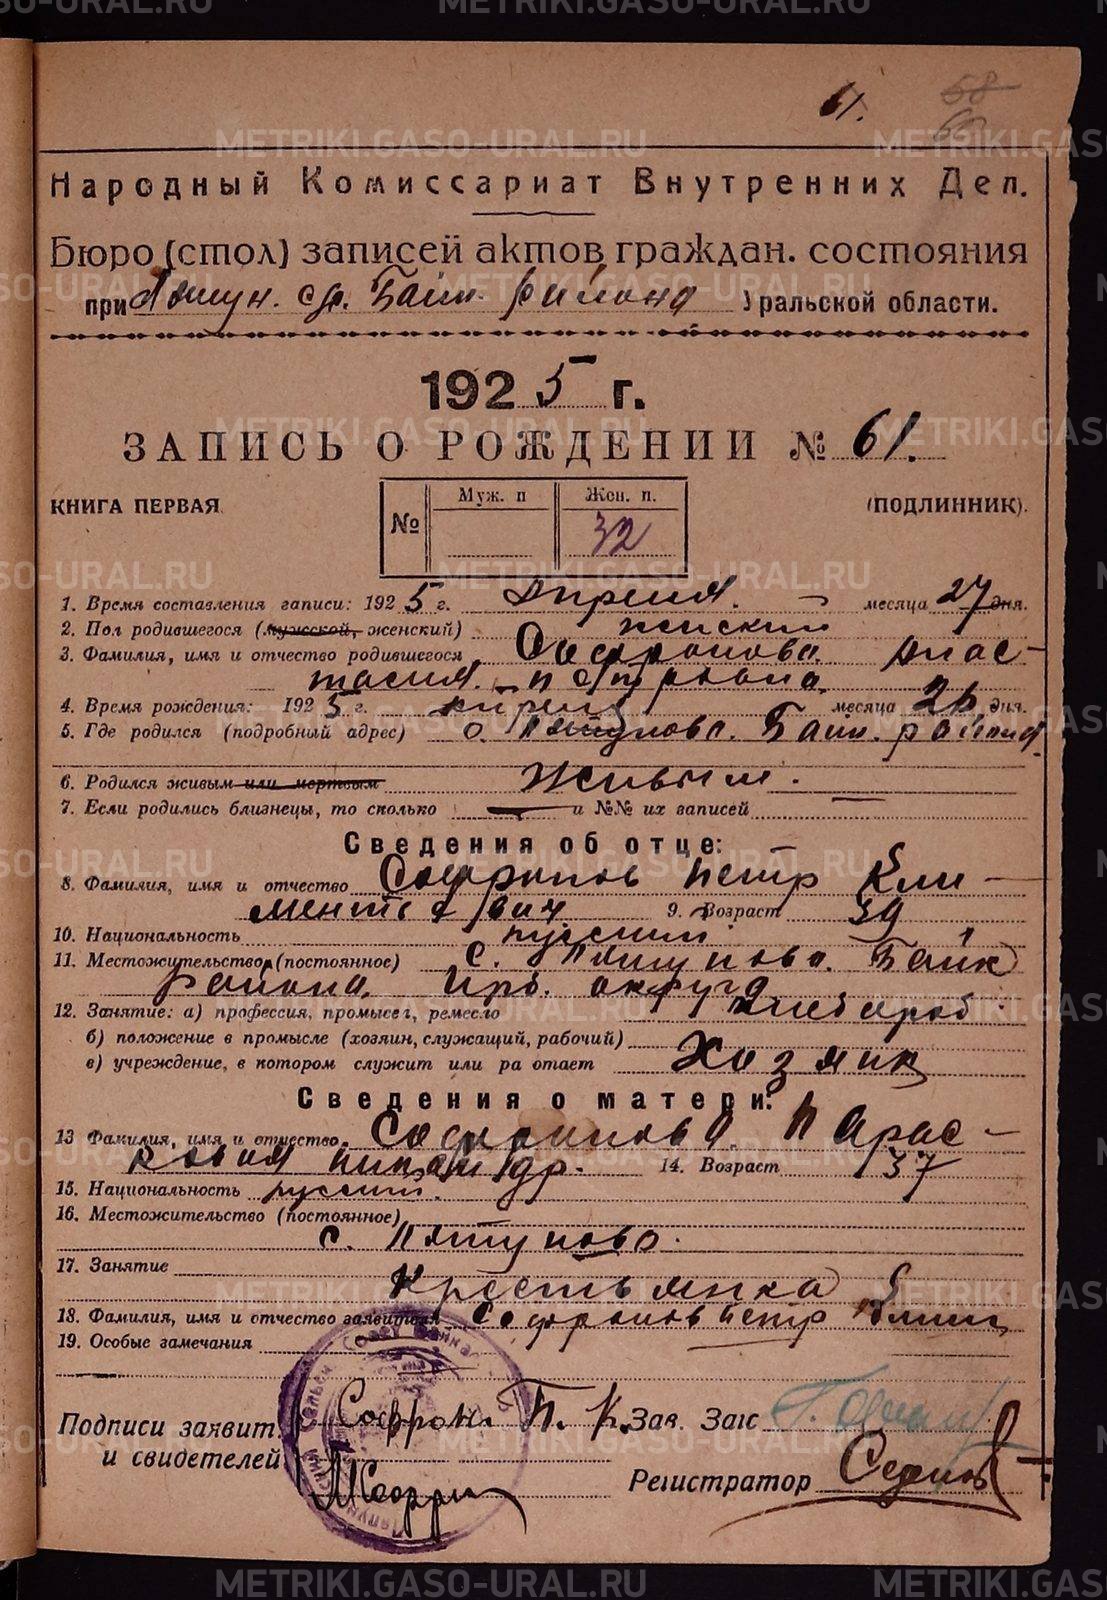 61.
58
60
Народный Комиссариат Внутренних Дел.
Бюро (стол) записей актов граждан. состояния
при Ляпун. с/с. Байк. района Уральской области.
1925 г.
ЗАПИСЬ О РОЖДЕНИИ № 61.
КНИГА ПЕРВАЯ (ПОДЛИННИК).
№ Муж. п Жен. п.
32
1. Время составления записи: 1925 г. Апреля. месяца 27 дня.
2. Пол родившегося (мужской, женский) женский
3. Фамилия, имя и отчество родившегося Софронова. Анас-
тасия. Петровна.
4. Время рождения: 1925 г. апреля месяца 26 дня.
5. Где родился (подробный адрес) с. Ляпунова. Байк. района.
6. Родился живым или мертвым Живым.
7. Если родились близнецы, то сколько — и №№ их записей
Сведения об отце:
8. Фамилия, имя и отчество Софронов Петр Кли-
ментьевич 9. Возраст 39
10. Национальность русский
11. Местожительство (постоянное) с. Ляпунова. Байк
района. Ирб. округа
12. Занятие: а) профессия, промысел, ремесло хлебороб.
б) положение в промысле (хозяин, служащий, рабочий)
в) учреждение, в котором служит или ра отает Хозяин
Сведения о матери:
13 Фамилия, имя и отчество Софронова. Парас-
ковия никандр. 14. Возраст 37
15. Национальность русский.
16. Местожительство (постоянное)
с. Ляпуново.
17. Занятие Крестьянка
18. Фамилия, имя и отчество заявителя Софронов Петр Климен
19. Особые замечания
Подписи заявит. Софронов П. К. Зав. Загс
и свидетелей
Регистратор
METRIKI.GASO-URAL.RU